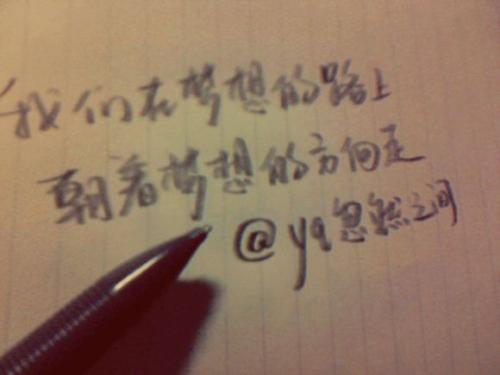 我们在梦想的路上
朝着梦想的方向走
@yq忽然之间